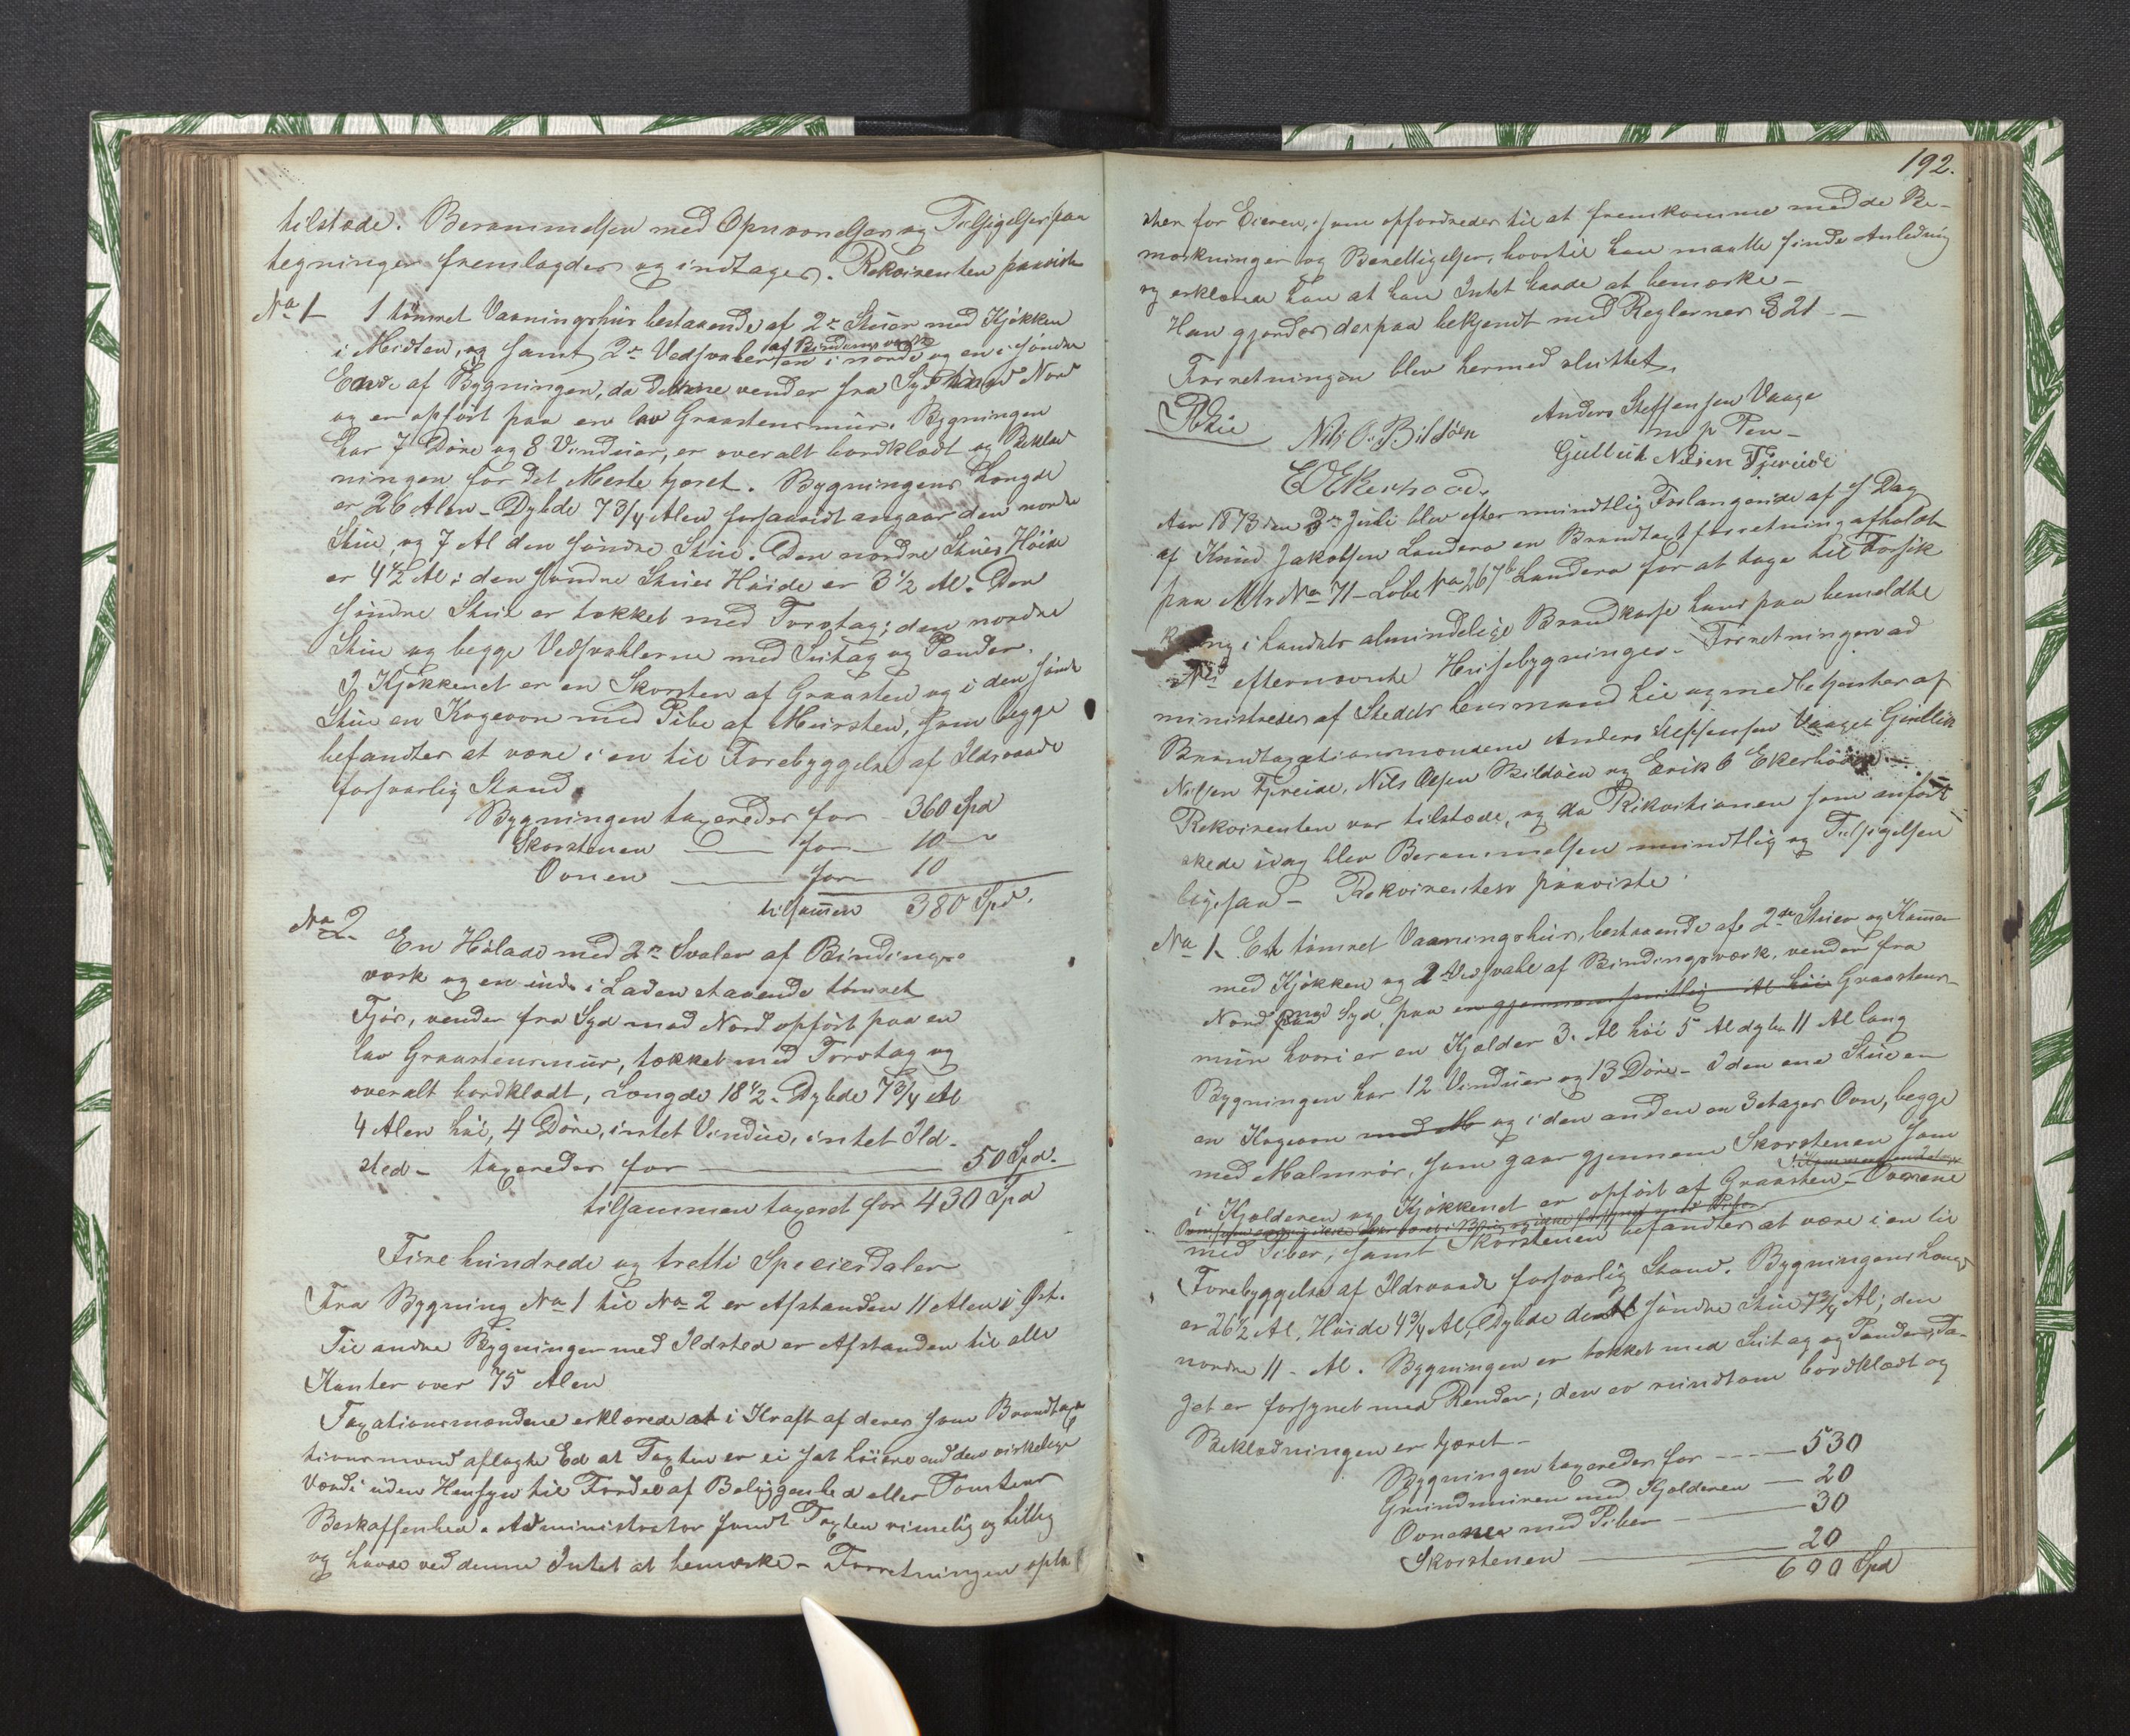 tilstæde. Berammelsen med Opnævnelses og Tilsigelsespaa
tegninger fremlagdes og indtages. Rekvirenten paaviste
No 1 1 tømret Vaaningshus bestaaende af 2de Stuer med Kjøkken
i Midten, og samt 2de Vedsvaler af Bindingsværk en i nordre og en i søndre
Ende af Bygningen, da denne vender fra Syd til Nord
og er opført paa en lav Graastensmur. Bygningen
har 7 Døre og 8 Vinduer, er overalt bordklædt og Beklæd
ningen for det Meste tjæret. Bygningens Længde
er 26 Alen - Dybde 7 3/4 Alen forsaavidt angaar den nordre
Stue, og 7 Al den søndre Stue. Den nordre Stues Høide
er 4 1/2 Al: den søndre Stues Høide er 3 1/2 Al. Den
søndre Stue er tækket med Torvtag; den nordre
Stue og begge Vedsvalerne med Sutag og Pander.
I Kjøkkenet er en Skorsten af Graasten og i den søndre
Stue en Kogeovn med Pibe af Mursten, som begge
befandtes at være i en til Forebyggelse af Ildsvaade
forsvarlig Stand.
Bygningen taxeredes for 360 Spd
Skorstenen for 10 "
Ovnen for 10
tilsammen 380 Spd.
No 2. En Hølade med 2de Svaler af Bindings-
værk og en inde i Laden staaende tømret
Fjøs, vender fra Syd mod Nord opført paa en
lav Graastensmur, tækket med Torvtag og
overalt bordklædt, Længde 18 1/2 - Dybde 7 3/4 Al
4 Alen høi, 4 Døre, intet Vindue, intet Ild-
sted - taxeredes for 50 Spd.
tilsammen taxeret for 430 Spd
Fire hundrede og tretti Speciesdaler
Fra Bygning No 1 til No 2 er Afstanden 11 Alen i Øst.
Til andre Bygninger med Ildsted er Afstanden til alle
Kanter over 75 Alen
Taxationsmændene erklærede at i Kraft af deres som Brandtaxa
tionsmænd aflagte Ed at Taxten er ei sat høiere end den virkelige
Værdi uden Hensyn til Fordel af Beliggenhed eller Tomtens
Beskaffenhed. Administrator fandt Taxten rimelig og billig
og havde ved denne Intet at bemærke - Forretningen oplæ
192.
stes for Eieren, som opfordredes til at fremkomme med de Be-
mærkninger og Berettigelser, hvortil han maatte finde Anledning
og erklærede han at han Intet havde at bemærke -
Han gjordes derpaa bekjendt med Reglernes § 21 -
Forretningen blev hermed sluttet.
Lie Nils O. Bildøen Anders Steffensen Vaage
m p Pen -
E O Ekerhovd. Gullik Nilsen Fjereide
Aar 1873 den 3de Juli blev efter mundtlig Forlangende af s Dag
af Knud Jakobsen Landero en Brandtaxtforretning afholdt
paa Mtr No 71 - Løbe No 267b Landero for at tage til Forsik
ring i Landets almindelige Brandkasse hans paa bemeldte
No efternævnte Husebygninger - Forretningen ad
ministredes af Stedets Lensmand Lie og medbetjentes af
Brandtaxationsmændene Anders Steffensen Vaage, Gullik
Nilsen Fjereide, Nils Olsen Bildøen og Erik O Ekerhovd
Rekvirenten var tilstæde, og da Rikvisitionen som anført
skede idag blev Berammelsen mundtlig og Tilsigelsen
ligesaa - Rekvirenten paaviste:
No 1. Et tømret Vaaningshus, bestaaende af 2de Stuer og Kammer
med Kjøkken og 1 Vedsvale af Bindingsværk, vender fra
Nord mod Syd, paa en gjennemsnitlig Al høi Graastens-
mur hvori er en Kjælder 3 Al høi 5 Al dyb 11 Al lang
Bygningen har 12 Vinduer og 13 Døre - I den ene Stue en
en Kogeovn og i den anden en 3 etages Ovn, begge
med Malmrør, som gaar gjennem Skorstenen som
i Kjælderen og Kjøkkenet er opført af Graasten - Ovnene
med Piber, samt Skorstenen befandtes at være i en til
Forebyggelse af Ildsvaade forsvarlig Stand. Bygningens Længde
er 26 1/2 Al, Høide 4 3/4 Al, Dybde den søndre Stue 7 3/4 Al; den
nordre 11 - Al. Bygningen er tækket med Sutag og Pander, Ta-
get er forsynet med Render; den er rundtom bordklædt og
Beklædningen er tjæret -
Bygningen taxeredes for 530
Grundmuren med Kjælderen 20
Ovnene med Piber 30
Skorstenen 20
600 Spd